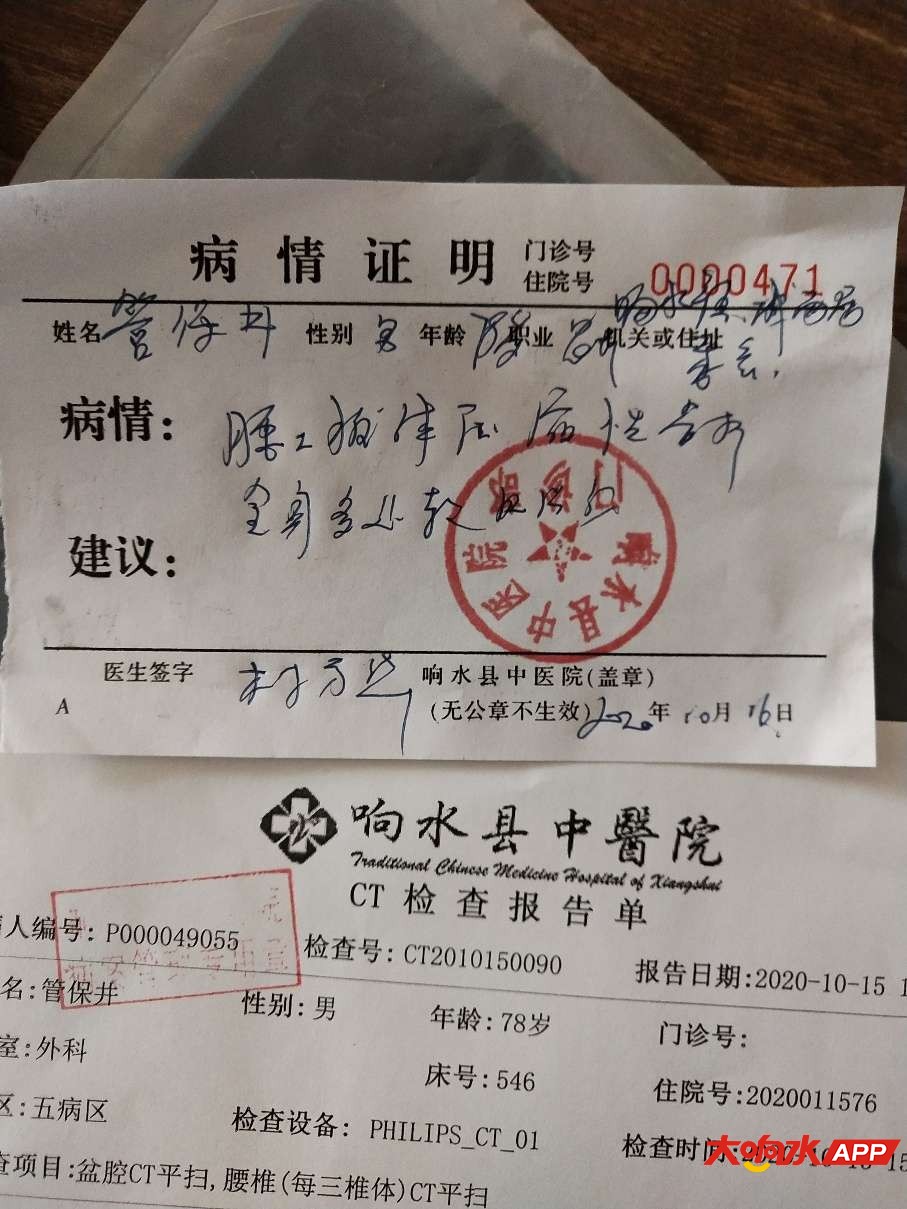 病情证明 门诊号
住院号 0000471
姓名 管保井 性别 男 年龄 职业 机关或住址
病情:
全身多处软
建议:
响水县中医院
门诊部
医生签字 响水县中医院(盖章)
A (无公章不生效) 2020年10月16日
响水县中醫院
Traditional Chinese Medicine Hospital of Xiangshui
CT检查报告单
人编号: P000049055 检查号: CT2010150090 报告日期:2020-10-15 1
病案管理专用章
名:管保井 性别:男 年龄:78岁 门诊号:
室:外科 床号:546 住院号:2020011576
区:五病区 检查设备: PHILIPS_CT_01 检查时间:2020-10-15
查项目:盆腔CT平扫,腰椎(每三椎体)CT平扫
大响水APP